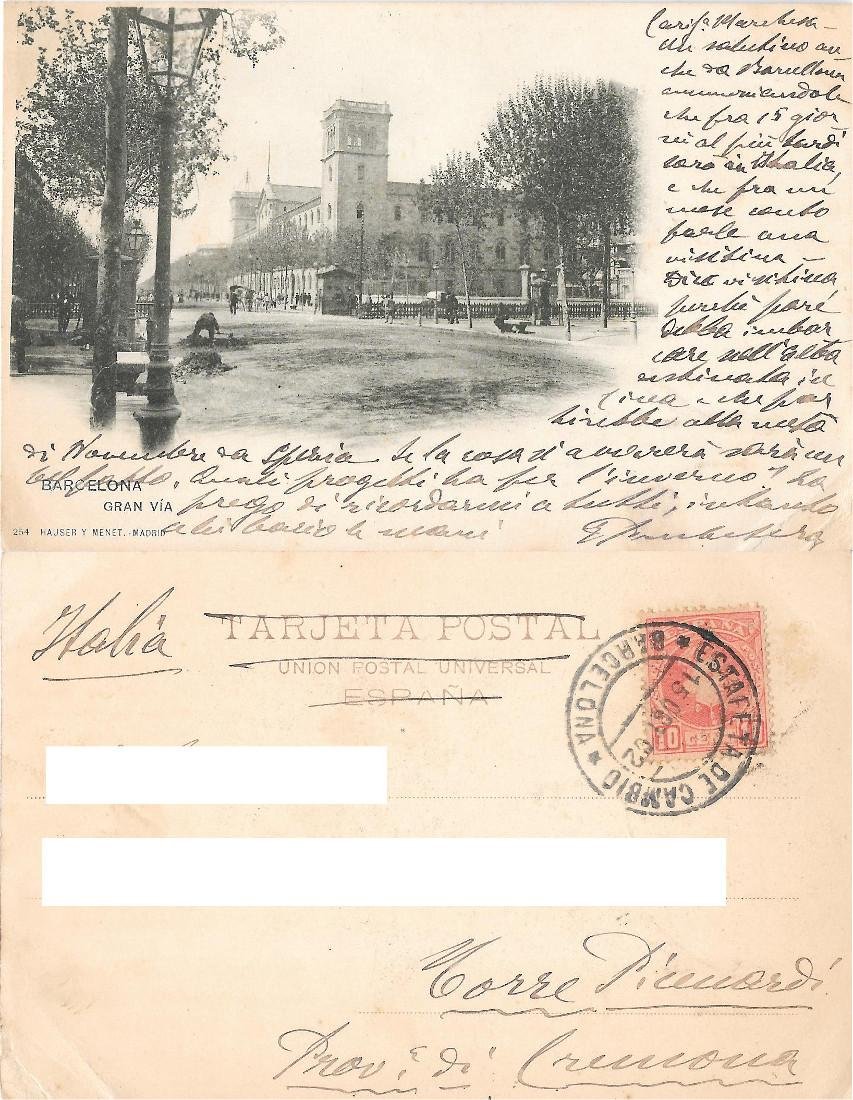 Caris.ª Marchesa –
Un salutino an
che da Barcellona
annunciandole
che fra 15 gior
ni al più tardi
sarò in Italia,
e che fra un
mese conto
farle una
visitina –
Dico visitina
perchè pare
debba imbar
care nell'alba
destinata in
Cina e che par
tirebbe alla metà
di Novembre da Spezia Se la cosa si avvererà sarà un
bel fatto. Quali progetti ha per l'inverno? La
prego di ricordarmi a tutti, intanto
le bacio le mani
BARCELONA
GRAN VÍA
254 HAUSER Y MENET.-MADRID
Italia
TARJETA POSTAL
UNION POSTAL UNIVERSAL
ESPAÑA
ESTAFETA DE CAMBIO
★ BARCELONA ★
10
Torre Picenardi
Prov.ª di Cremona